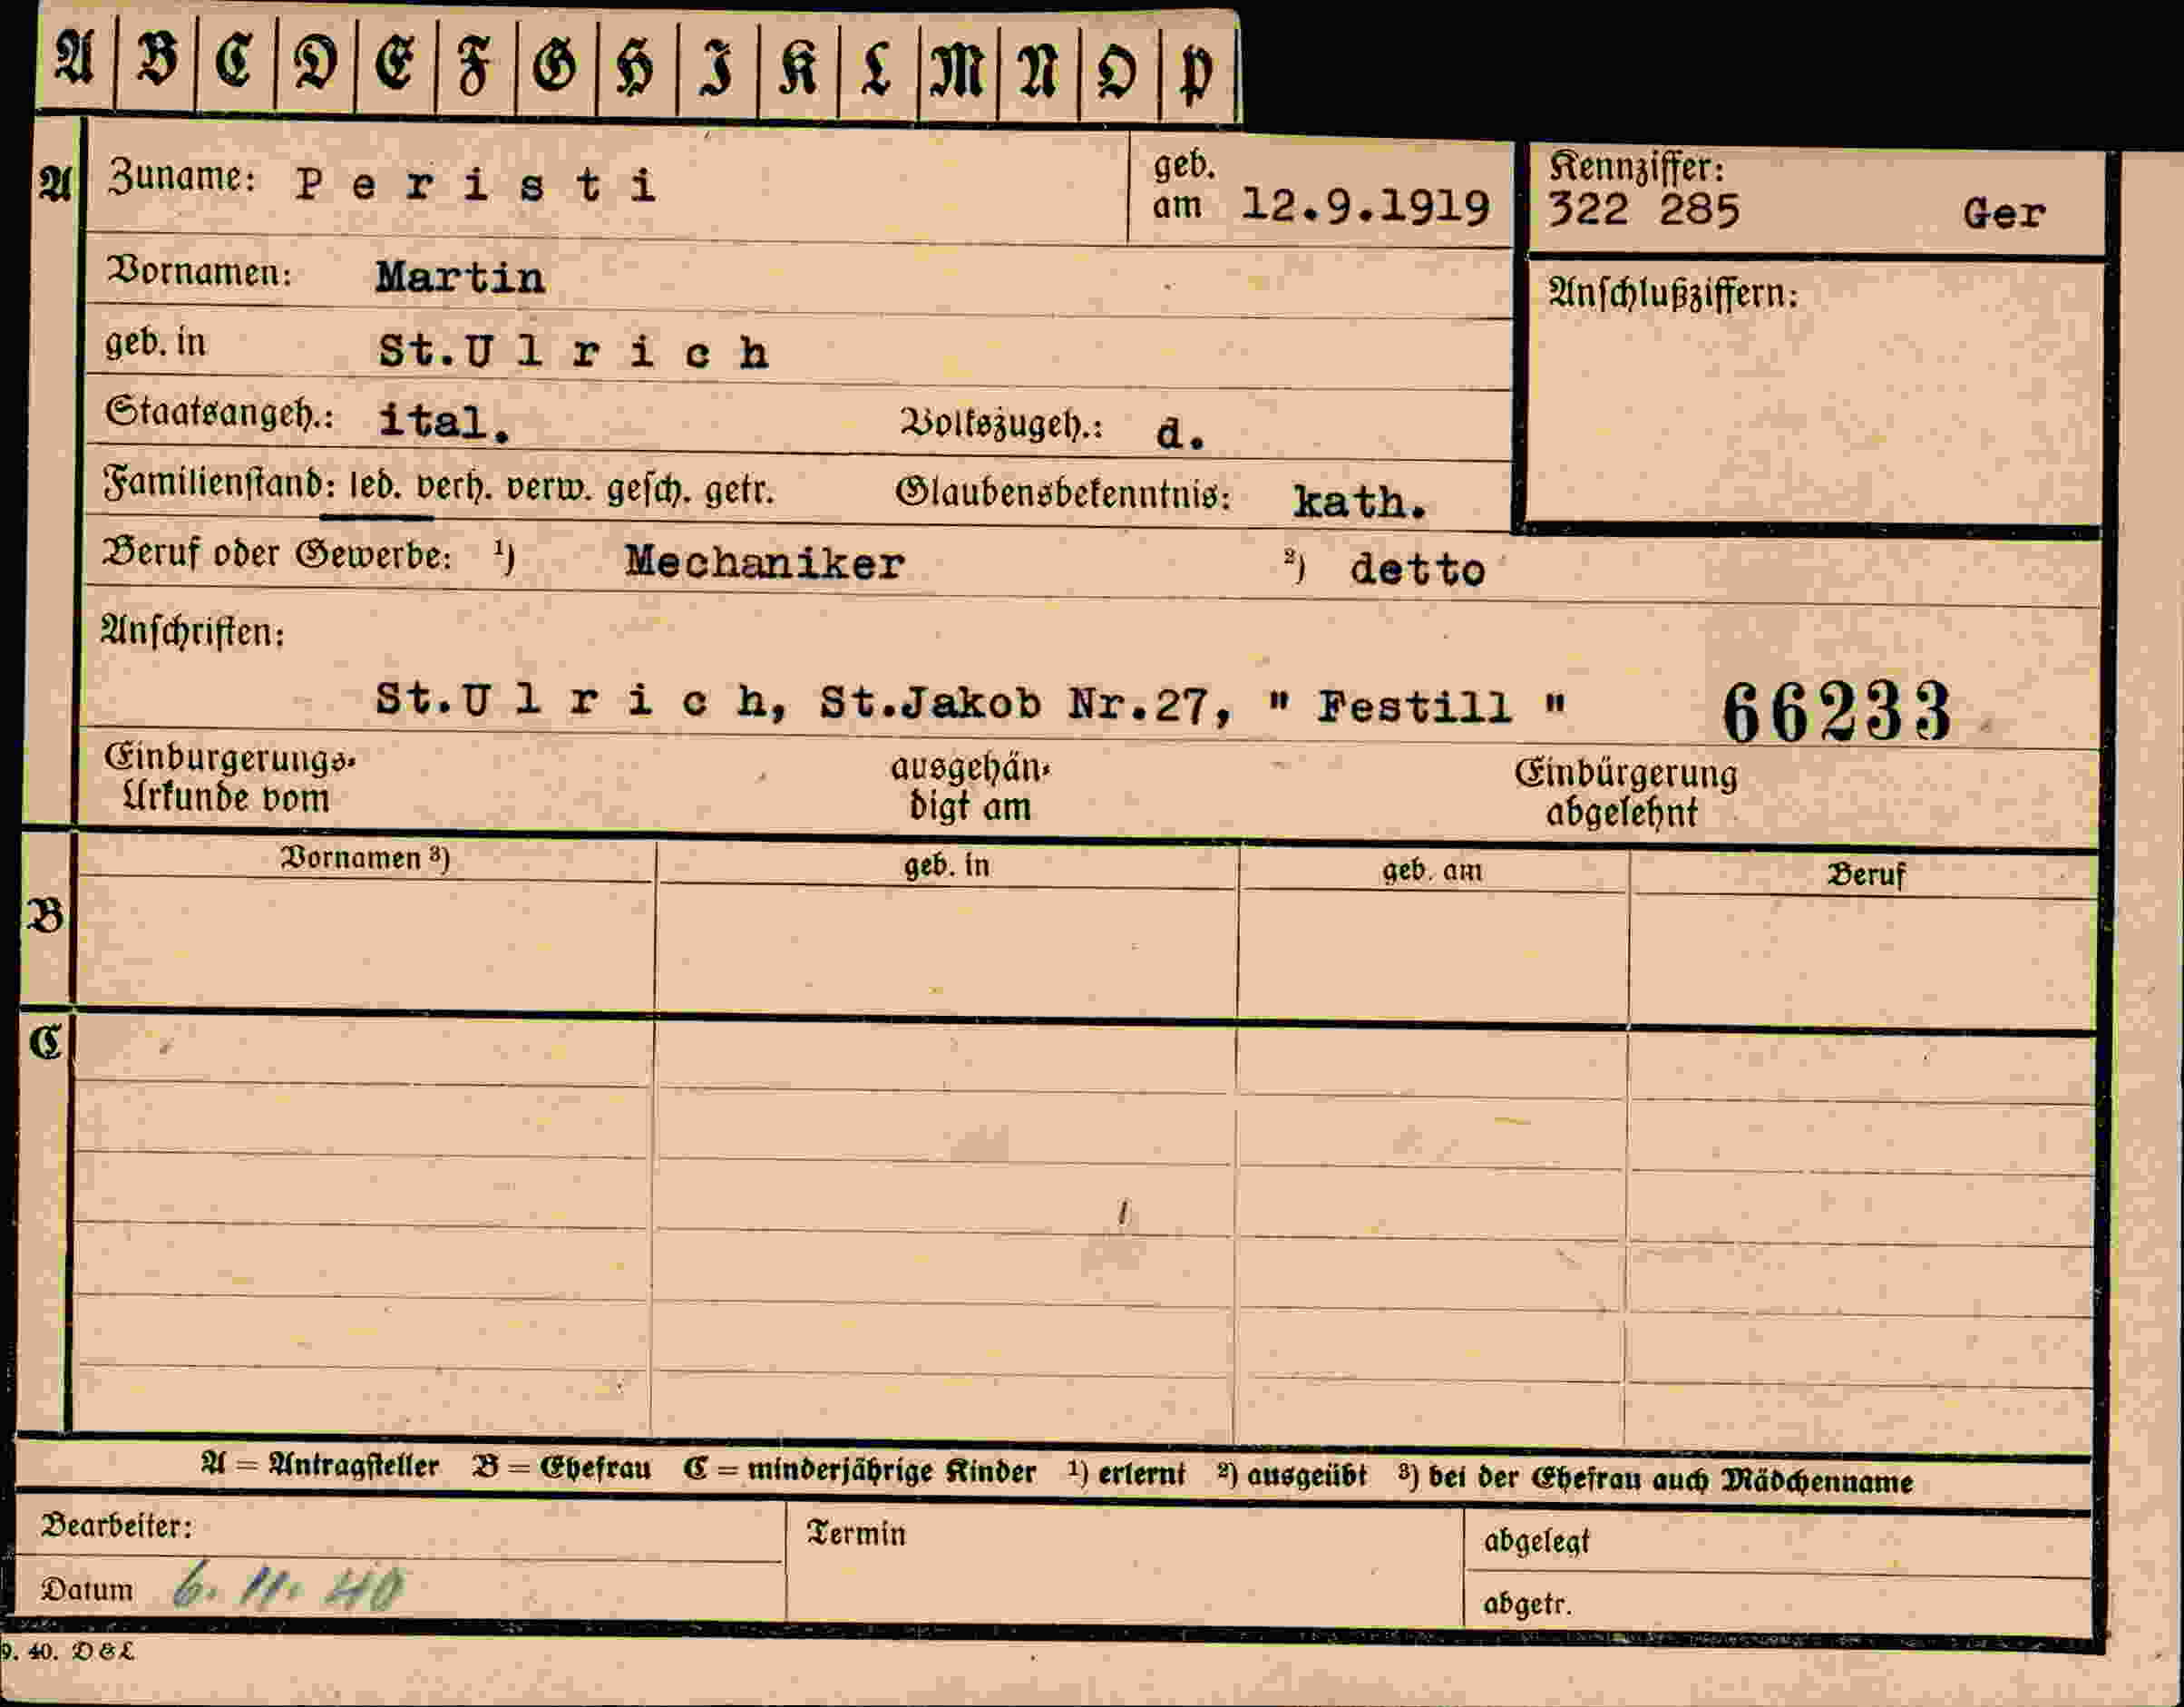 A B C D E F G H I K L M N O P
A Zuname: P e r i s t i geb. am 12.9.1919 Kennziffer: 322 285 Ger
Vornamen: Martin Anschlußziffern:
geb. in St.U l r i c h
Staatsangeh.: ital. Volkszugeh.: d.
Familienstand: led. verh. verw. gesch. getr. Glaubensbekenntnis: kath.
Beruf oder Gewerbe: ¹) Mechaniker ²) detto
Anschriften:
St.U l r i c h, St.Jakob Nr.27, " Festill " 66233
Einbürgerungs- ausgehän- Einbürgerung
Urkunde vom digt am abgelehnt
Vornamen ³) geb. in geb. am Beruf
B
C
A = Antragsteller B = Ehefrau C = minderjährige Kinder ¹) erlernt ²) ausgeübt ³) bei der Ehefrau auch Mädchenname
Bearbeiter: Termin abgelegt
Datum 6. 11. 40 abgetr.
9. 40. D & L